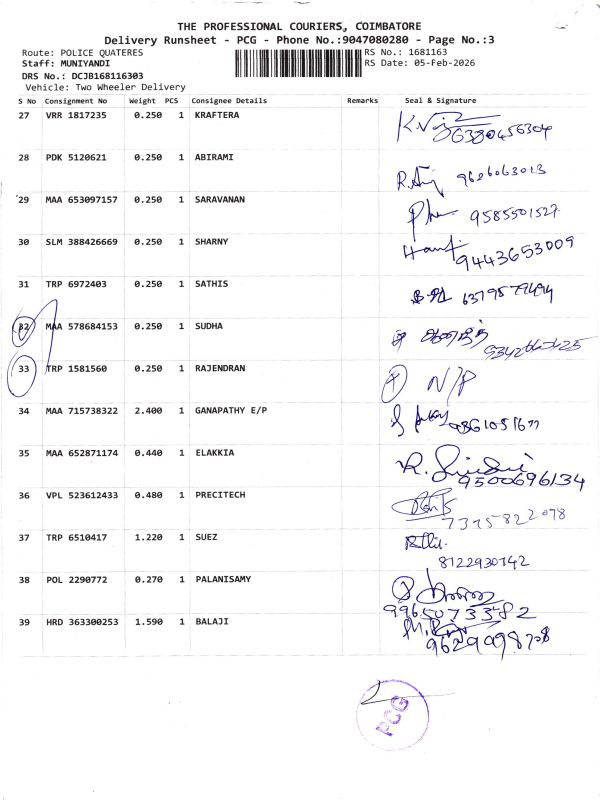 THE PROFESSIONAL COURIERS, COIMBATORE
Delivery Runsheet - PCG - Phone No.:9047080280 - Page No.:3
Route: POLICE QUATERES RS No.: 1681163
Staff: MUNIYANDI RS Date: 05-Feb-2026
DRS No.: DCJB168116303
Vehicle: Two Wheeler Delivery
S No Consignment No Weight PCS Consignee Details Remarks Seal & Signature
27 VRR 1817235 0.250 1 KRAFTERA
6380456304
28 PDK 5120621 0.250 1 ABIRAMI
9626063013
29 MAA 653097157 0.250 1 SARAVANAN
9585501527
30 SLM 388426669 0.250 1 SHARNY
9443653009
31 TRP 6972403 0.250 1 SATHIS
32 MAA 578684153 0.250 1 SUDHA
33 TRP 1581560 0.250 1 RAJENDRAN N/P
34 MAA 715738322 2.400 1 GANAPATHY E/P
35 MAA 652871174 0.440 1 ELAKKIA
9500696134
36 VPL 523612433 0.480 1 PRECITECH
7375822078
37 TRP 6510417 1.220 1 SUEZ
8122930742
38 POL 2290772 0.270 1 PALANISAMY
9965073382
39 HRD 363300253 1.590 1 BALAJI
PCG